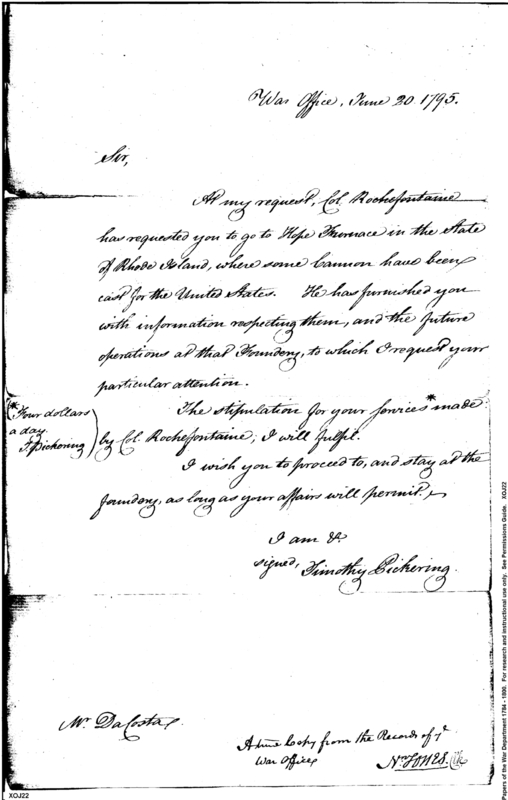 War Office, June 20. 1795.
Sir,
At my request, Col. Rochefontaine
has requested you to go to Hope Furnace in the State
of Rhode Island, where some Cannon have been
cast for the United States. He has furnished you
with information respecting them, and the future
operations at that Foundery, to which I request your
particular attention.
The stipulation for your services * made
by Col. Rochefontaine, I will fulfil.
* Four dollars
a day.
T. Pickering
I wish you to proceed to, and stay at the
foundery, as long as your affairs will permit.
I am &c.
signed, Timothy Pickering.
Mr. DaCosta
A true Copy from the Records of ye
War Office
Nn JONES. Clk
XOJ22
Papers of the War Department 1784 - 1800. For research and instructional use only. See Permissions Guide. XOJ22